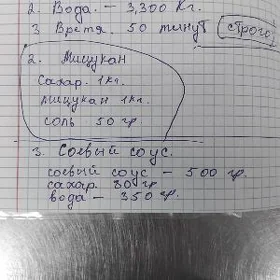 2. Вода. – 3,300 кг.
3 Время. 50 минут строго
2. Мицукан
Сахар 1 кг.
мицукан 1 кг.
соль 50 гр.
3. Соевый соус.
соевый соус – 500 гр.
сахар 80 гр
вода – 350 гр.